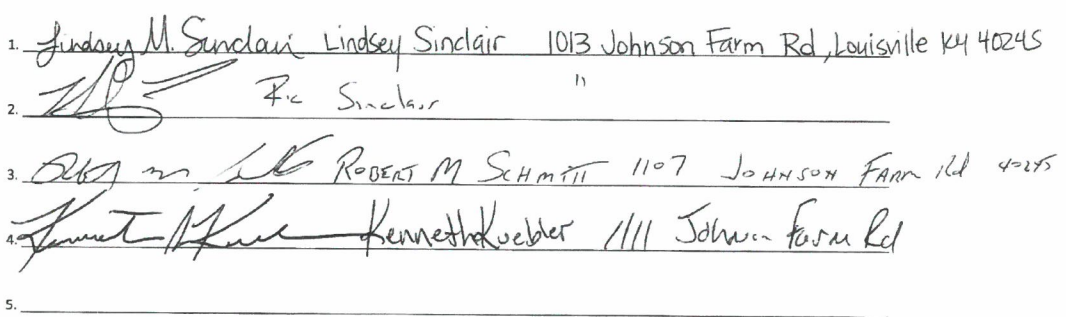 1. Lindsey M. Sinclair Lindsey Sinclair 1013 Johnson Farm Rd, Louisville KY 40245
2. Ric Sinclair "
3. ROBERT M SCHMITT 1107 JOHNSON FARM Rd 40245
4. Kenneth Kuebler 1111 Johnson Farm Rd
5.